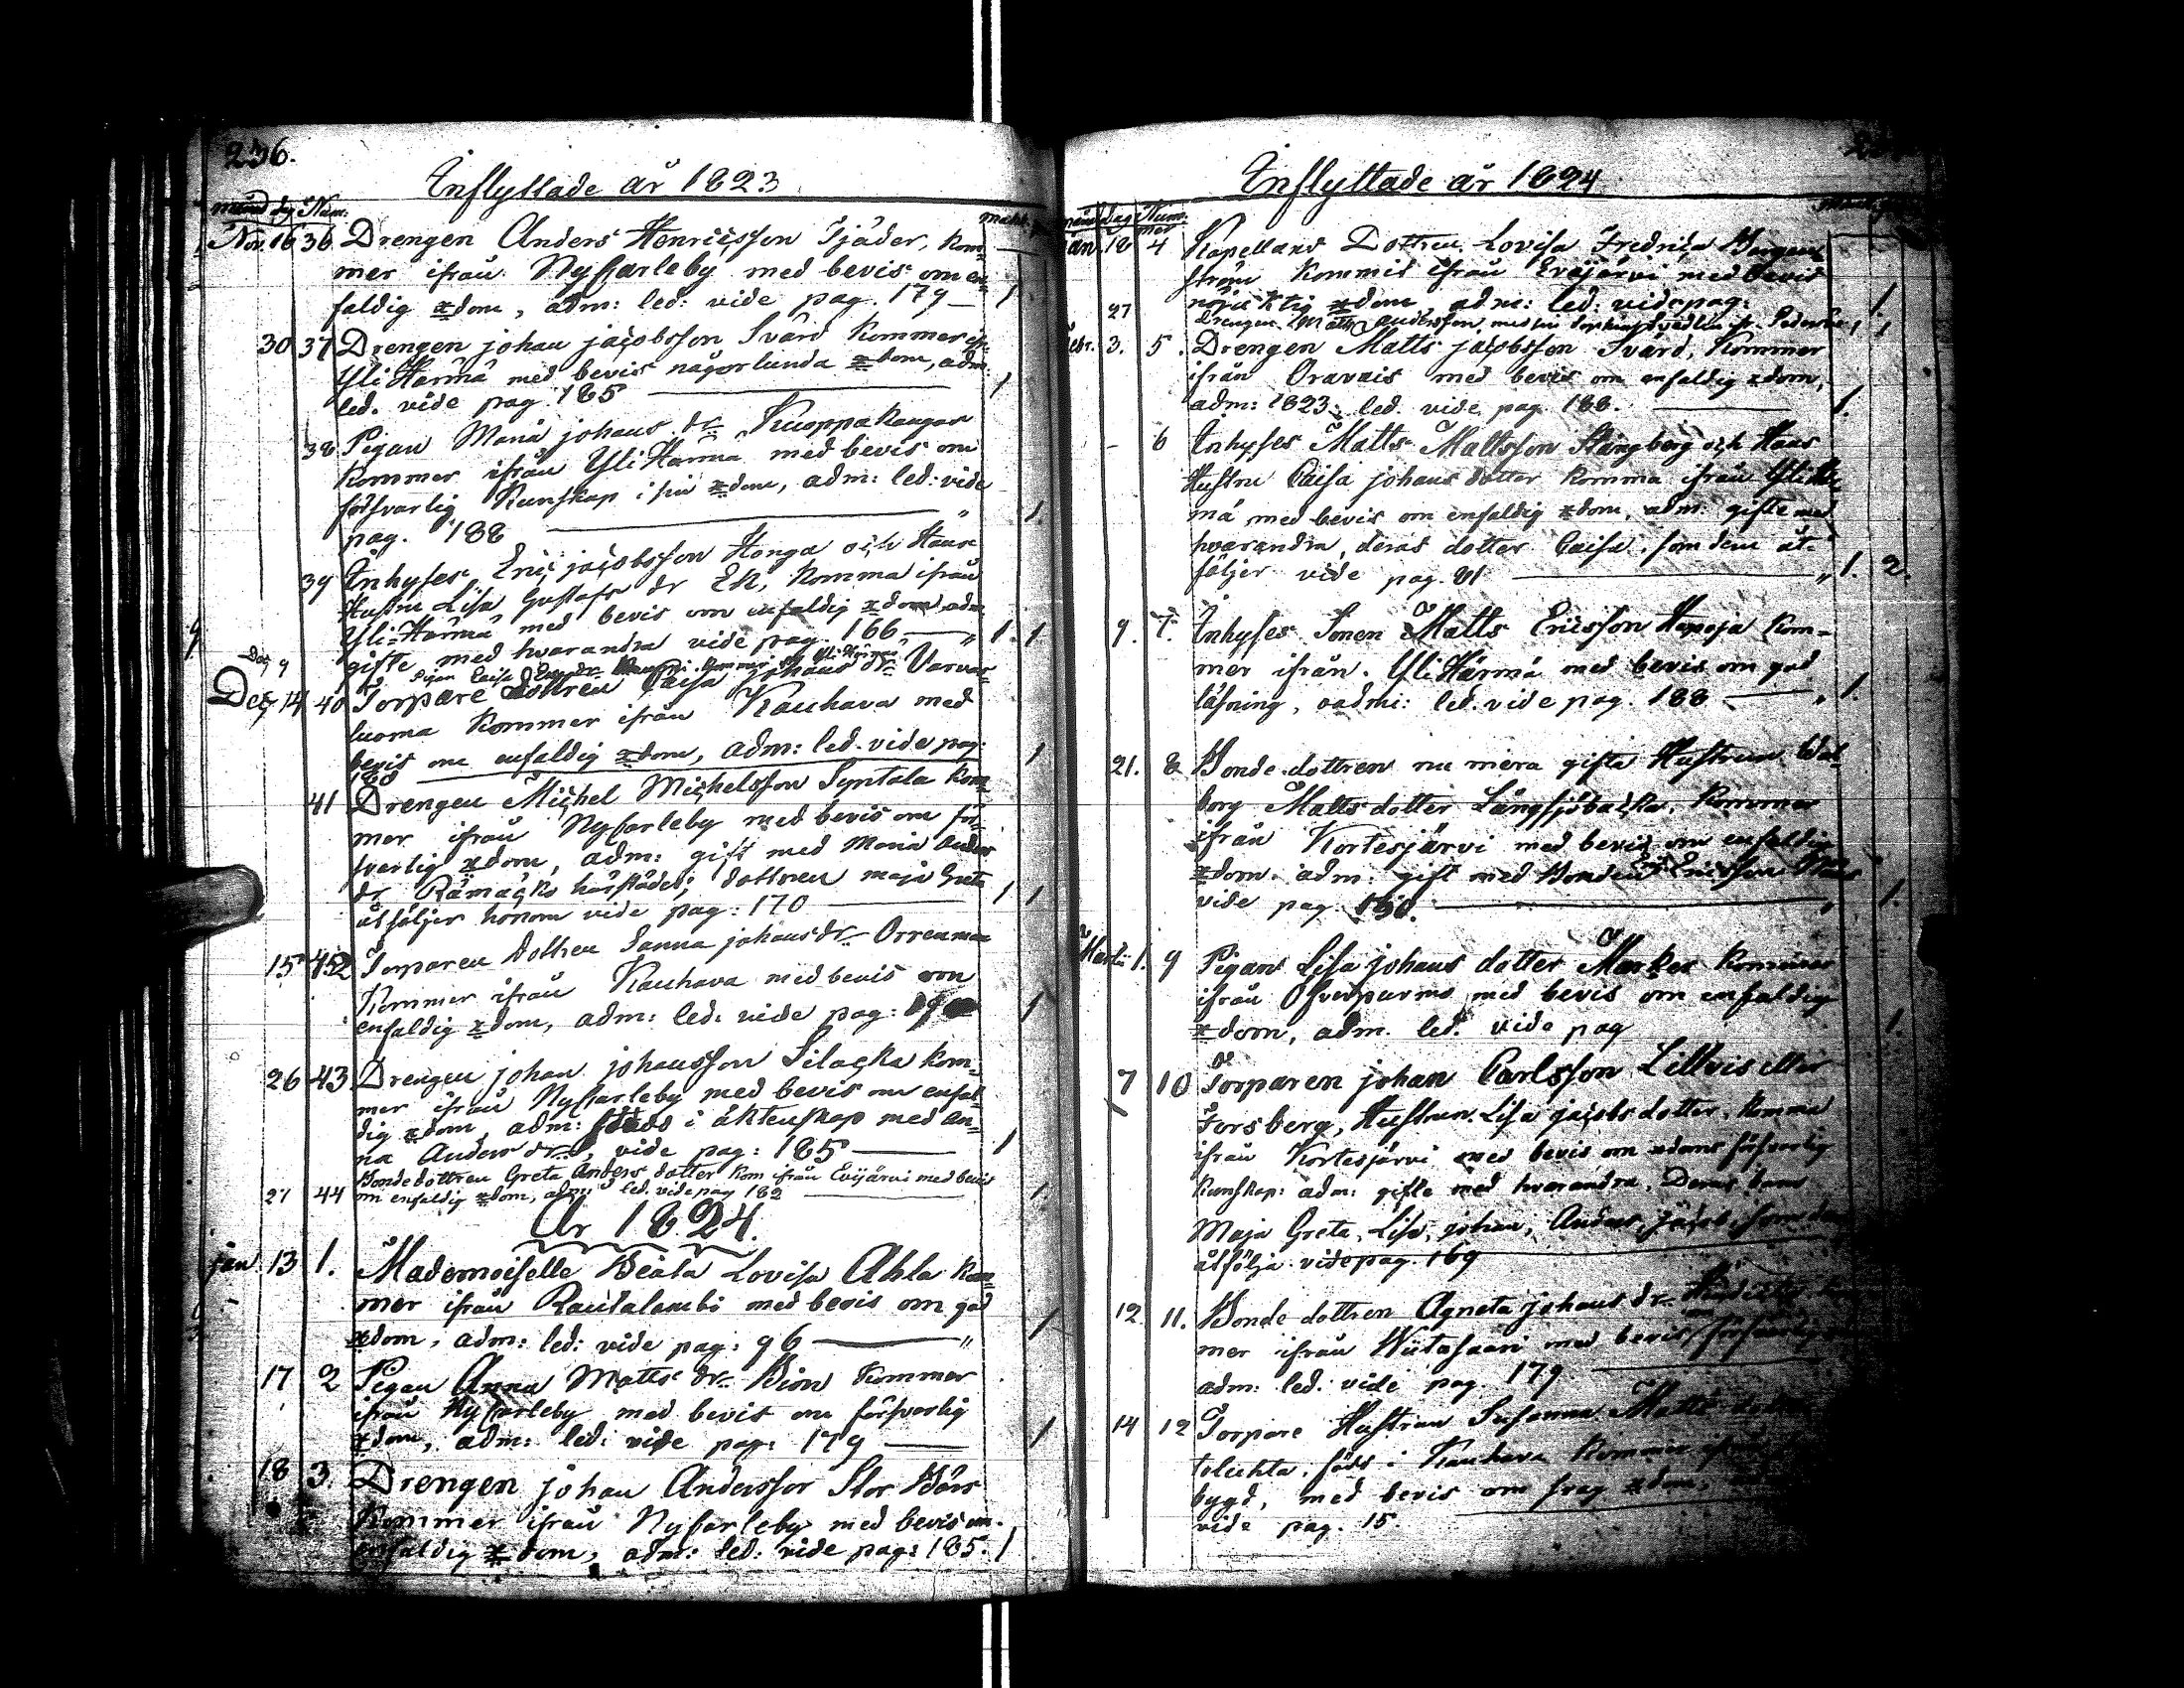 236.
Inflyttade år 1823
månd dg Num: mankk.
Nov. 16 36 Drengen Anders Henricsson Tjäder, kom¬
mer ifrån Nycarleby med bevis om en¬
faldig xdom, adm: led: vide pag. 179 — 1
30 37 Drengen johan jacobsson Svärd kommer ifr:
Yli Härmä med bevis någorlunda xdom, adm:
led. vide pag. 185 — 1
38 Pigan Maria johans dr Kuoppakangas
kommer ifrån Yli Härmä med bevis om
försvarlig kunskap i sin xdom, adm: led: vide
pag. 188 — " 1.
39 Inhyses Eric jacobsson Honga och Hans
Hustru Lisa Gustafs dr Ek, komma ifrån
Yli-Härmä med bevis om enfaldig xdom, adm
gifte med hvarandra vide pag. 166, — " 1. 1.
Dec 9 Pigan Caisa kommer
Dec. 14 40 Torpare dottren Caisa johans dr Varvas¬
luoma kommer ifrån Kauhava med
bevis om enfaldig xdom, adm: led. vide pag:
188 — 1
41 Drengen Michel Michelsson Syntala kom¬
mer ifrån Nycarleby med bevis om för¬
svarlig xdom, adm: gift med Maria Anders
dr Rämäcko härstädes; dottren maja Greta
åtföljer honom vide pag: 170 — 1 1
15 42 Torparen dottren Sanna johans dr Orrenmaa
Kommer ifrån Kauhava med bevis om
enfaldig xdom, adm: led: vide pag: 1
26 43 Drengen johan johansson Silacka kom¬
mer ifrån Nycarleby med bevis om enfal¬
dig xdom, adm: i äktenskap med An¬
na Anders dr, vide pag: 185 — 1
Bonde dottren Greta Anders dotter kom ifrån Evijärvi med bevis
27 44 om enfaldig xdom, adm: led. vide pag 182 — 1
År 1824.
jan. 13 1. Mademoiselle Beata Lovisa Ahla kom¬
mer ifrån Rautalambi med bevis om god
xdom, adm: led: vide pag: 96 — " 1
17 2 Pigan Anna Matts dr Biön kommer
ifrån Nycarleby med bevis om försvarlig
xdom, adm: led: vide pag: 179 — 1
18 3. Drengen johan Andersson Stor Bärs
Kommer ifrån Nycarleby med bevis om
enfaldig xdom, adm: led: vide pag: 185. 1
Inflyttade år 1824
månd dag Num¬
mer
jan. 18 4 Kapellans Dottren Lovisa Fredrica
ström kommit ifrån Evijärvi med bevis
nöjaktig xdom, adm: led: vide pag: 1
27 Drengen Matts Andersson, med sin
Febr. 3. 5. Drengen Matts jacobsson Svärd, Kommer
ifrån Oravais med bevis om enfaldig xdom,
adm: 1823: led. vide pag. 188. — 1.
- 6 Inhyses Matts Mattsson Stangberg och Hans
Hustru Caisa johans dotter komma ifrån Yli Här
mä med bevis om enfaldig xdom, adm: gifte med
hvarandra, deras dotter Caisa, som dem åt¬
följer vide pag. 81 — " 1. 2.
9. 7. Inhyses Sonen Matts Ericsson Hapoja kom¬
mer ifrån Yli Härmä med bevis om god
läsning, oadmi: led. vide pag. 188 — " 1.
21. 8 Bonde dottren nu mera gifta Hustrun Wal¬
borg Matts dotter Långsjöbacka, kommer
ifrån Kortesjärvi med bevis om enfaldig
xdom. adm: gift med Bonden Eric Ericsson
vide pag. 130. — " 1.
Martii 1. 9 Pigan Lisa johans dotter Markes kommer
ifrån Öfverpurmo med bevis om enfaldig
xdom, adm. led. vide pag 1.
7 10 Torparen johan Carlsson Lillvis eller
Forsberg, Hustrun Lisa jacobs dotter, komma
ifrån Kortesjärvi med bevis om xdoms försvarlig
kunskap: adm: gifte med hvarandra, Deras barn
Maja Greta, Lisa, johan, Anders, jacob, som dem
åtfölja vide pag. 169
12 11. Bonde dottren Agneta johans dr kom
mer ifrån Wiitasaari med bevis om försvarlig
adm: led: vide pag. 179 —
14 12 Torpare Hustrun Susanna Matts dotter
född i Kauhava kommer ifrån
bygd, med bevis om svag xdom,
vide pag. 15.